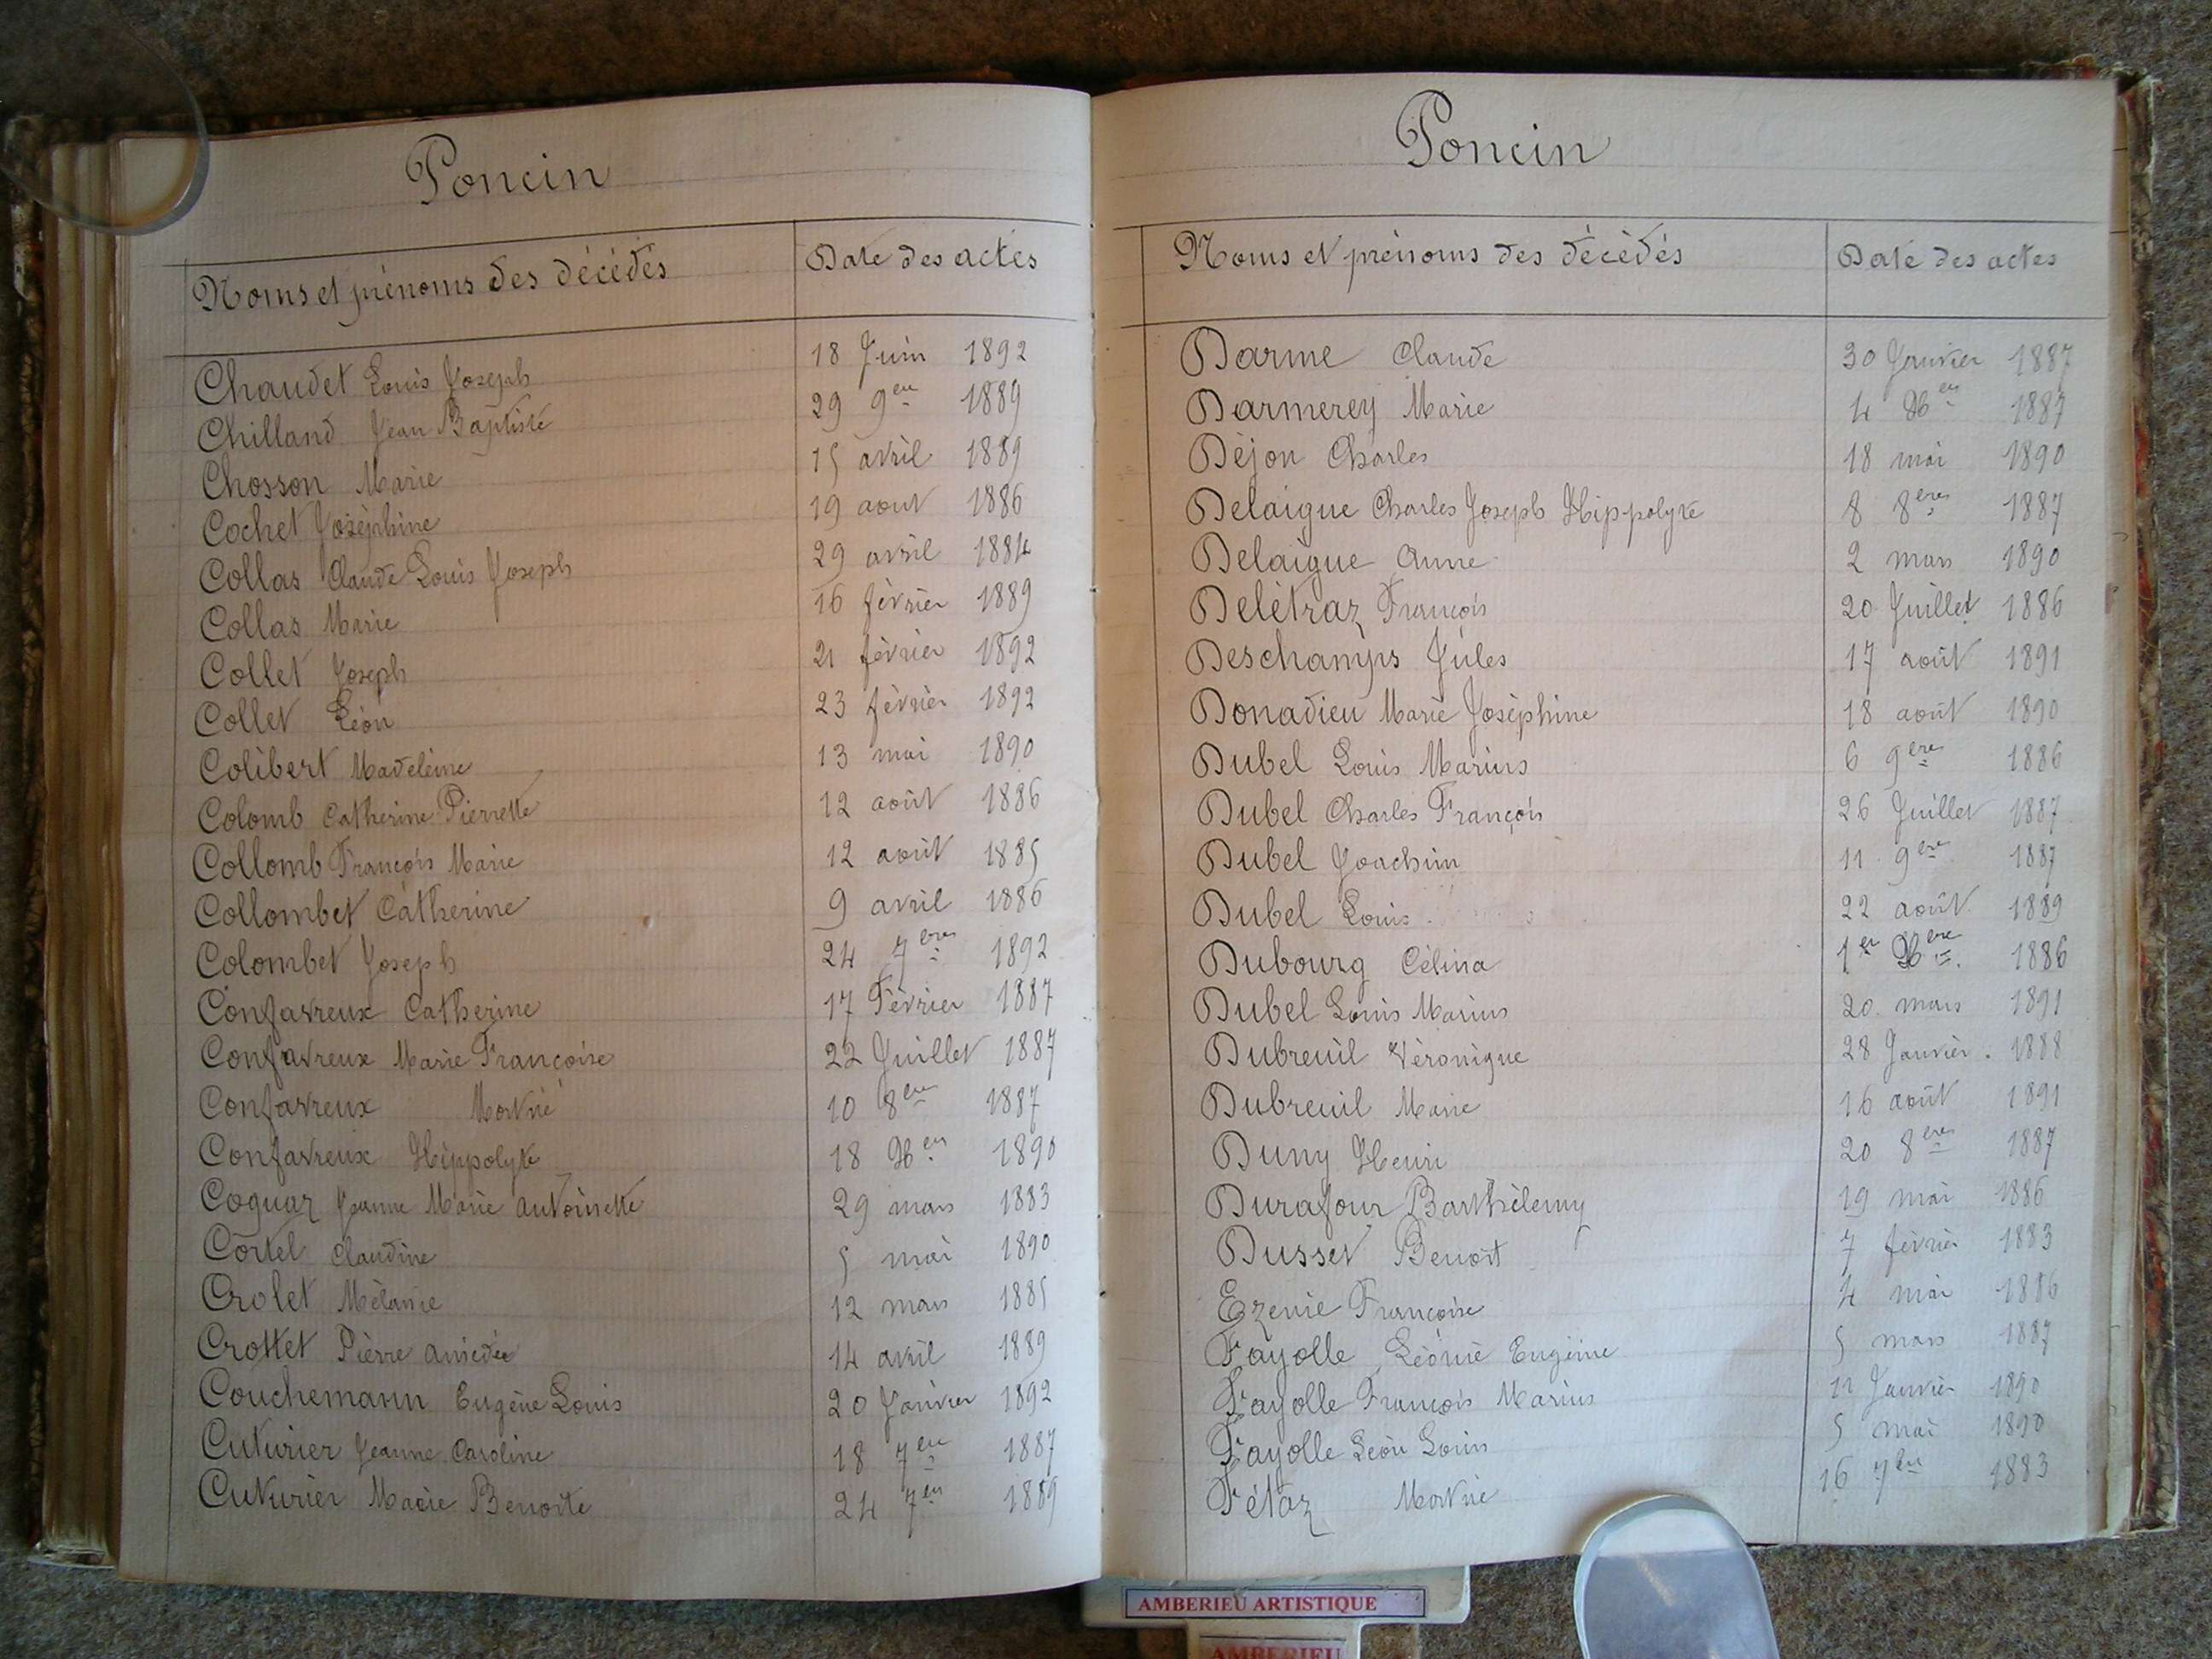 Poncin
Noms et prénoms des décédés Date des actes
Chaudet Louis Joseph 18 Juin 1892
Chilland Jean Baptiste 29 9bre 1889
Chosson Marie 15 avril 1889
Cochet Joséphine 19 aout 1886
Collas Claude Louis Joseph 29 avril 1884
Collas Marie 16 février 1889
Collet Joseph 21 février 1892
Collet Léon 23 février 1892
Colibert Madeleine 13 mai 1890
Colomb Catherine Pierrette 12 août 1886
Collomb François Marie 12 août 1885
Collombet Catherine 9 avril 1886
Colombet Joseph 24 7bres 1892
Confavreux Catherine 17 Février 1887
Confavreux Marie Françoise 22 Juillet 1887
Confavreux Mort né 10 8bre 1887
Confavreux Hippolyte 18 Xbre 1890
Coguaz Jeanne Marie Antoinette 29 mars 1883
Cortel Claudine 5 mai 1890
Crolet Mélanie 12 mars 1885
Crottet Pierre Amédée 14 avril 1889
Couchemann Eugène Louis 20 Janvier 1892
Cuturier Jeanne Caroline 18 7bre 1887
Cuturier Marie Benoite 24 7bre 1889
Poncin
Noms et prénoms des décédés Date des actes
Darme Claude 30 Janvier 1887
Darmerey Marie 4 Xbre 1887
Déjon Charles 18 mai 1890
Delaigue Charles Joseph Hippolyte 8 8bres 1887
Delaigue Anne 2 mars 1890
Delétraz François 20 Juillet 1886
Deschamps Jules 17 août 1891
Donadieu Marie Joséphine 18 août 1890
Dubel Louis Marius 6 9bre 1886
Dubel Charles François 26 Juillet 1887
Dubel Joachim 11 9bre 1887
Dubel Louis 22 août 1889
Dubourg Célina 1er Xbre 1886
Dubel Louis Marius 20 mars 1891
Dubreuil Véronique 28 Janvier. 1888
Dubreuil Marie 16 août 1891
Duny Henri 20 8bres 1887
Durafour Barthélemy 19 mai 1886
Dusset Benoit 7 février 1883
Ezenie Françoise 4 mai 1886
Fayolle Léonie Eugénie 5 mars 1887
Fayolle François Marius Janvier 1890
Fayolle Léon Louis 5 mai 1890
Fétaz Mort né 16 7bre 1883
AMBERIEU ARTISTIQUE
AMBERIEU